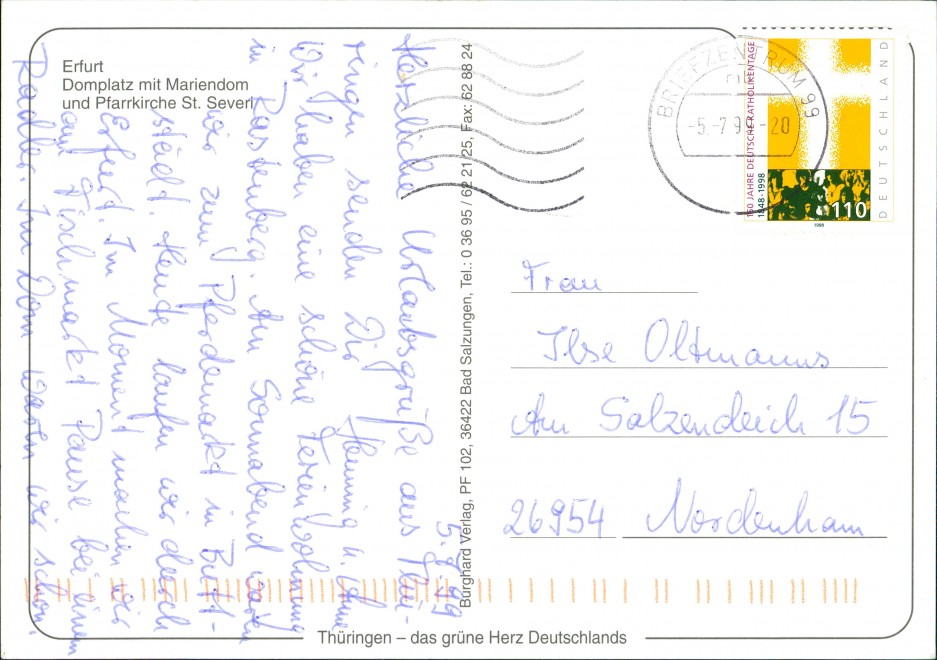 Erfurt
Domplatz mit Mariendom
und Pfarrkirche St. Severi
5.7.99
Herzliche Urlaubsgrüße aus Thü-
ringen senden Dir Henning u.
Wir haben eine schöne Ferienwohnung
in Rastenberg. Am Sonnabend waren
wir zum Pferdemarkt in Butt-
städt. Heute laufen wir durch
Erfurt. Im Moment machen wir
am Fischmarkt Pause bei einem
Radler. Im Dom waren wir schon.
Burghard Verlag, PF 102, 36422 Bad Salzungen, Tel.: 0 36 95 / 62 21 25, Fax: 62 88 24
BRIEFZENTRUM 99
-5.-7.99-20
150 JAHRE DEUTSCHE KATHOLIKENTAGE
1848-1998
DEUTSCHLAND
110
1998
Frau
Ilse Oltmanns
Am Salzendeich 15
26954 Nordenham
Thüringen – das grüne Herz Deutschlands